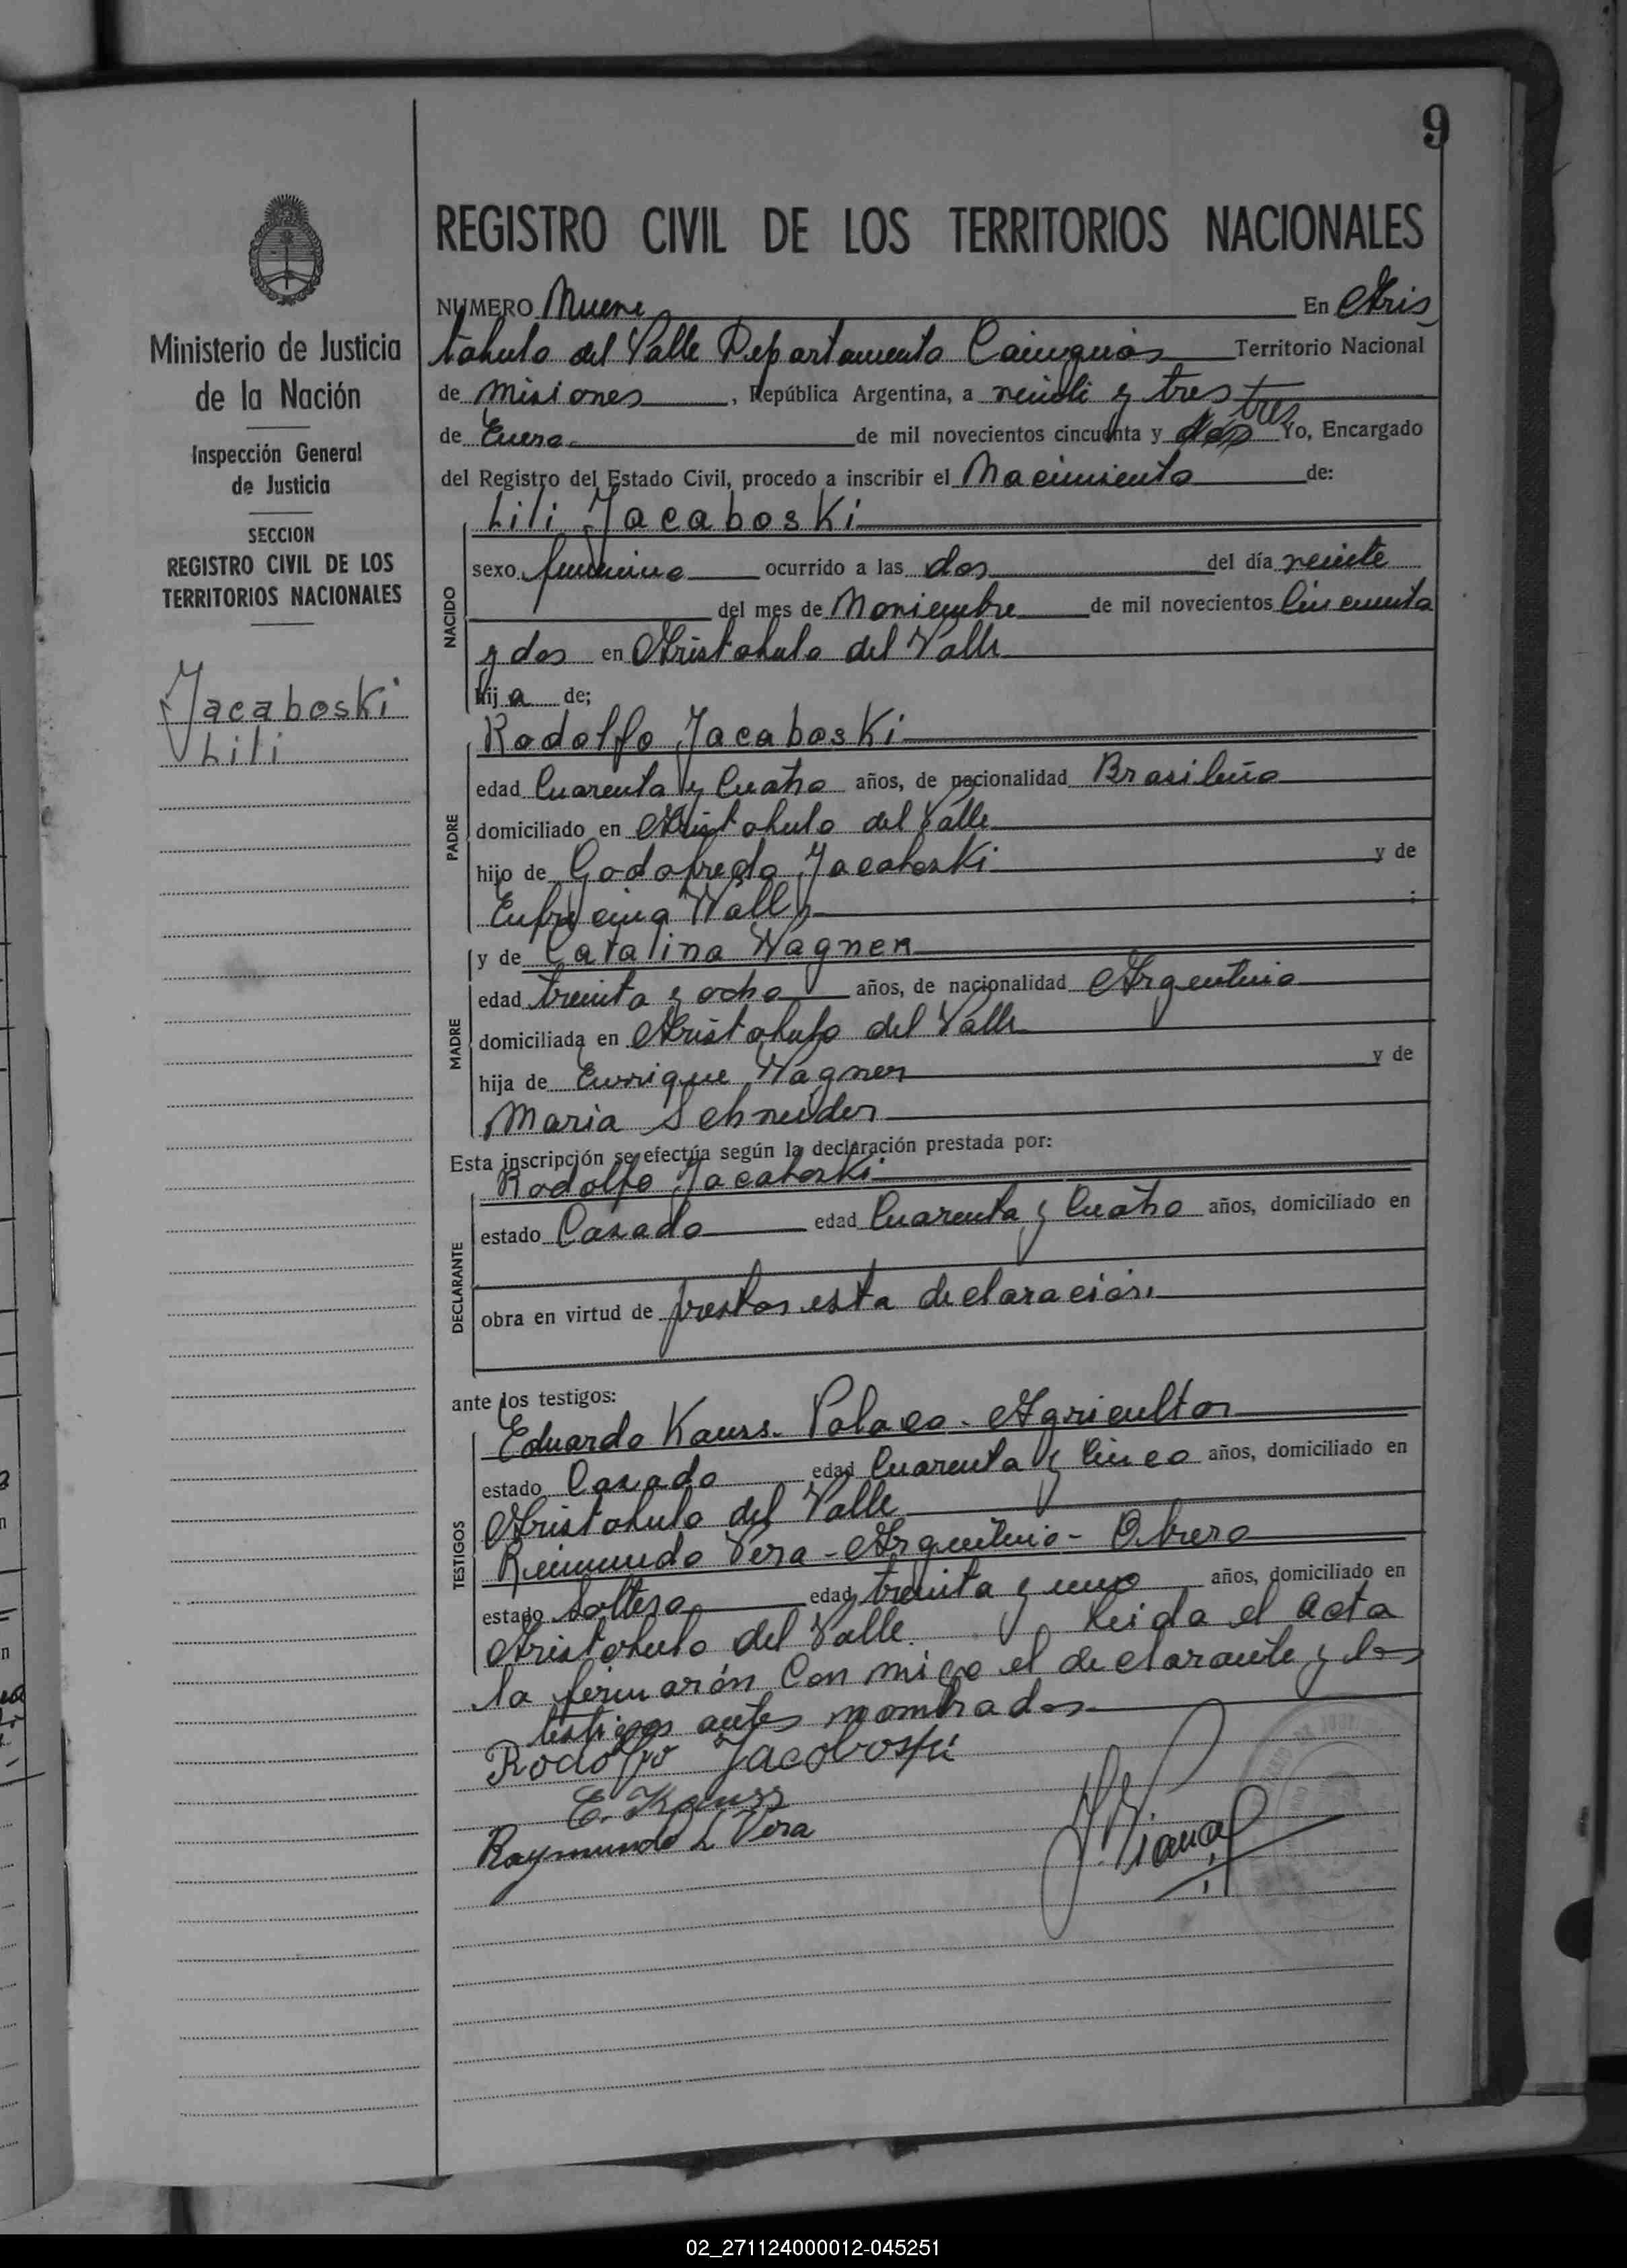 9
REGISTRO CIVIL DE LOS TERRITORIOS NACIONALES
Ministerio de Justicia
de la Nación
Inspección General
de Justicia
SECCION
REGISTRO CIVIL DE LOS
TERRITORIOS NACIONALES
Jacaboski
Lili
NUMERO Nueve En Aris
tobulo del Valle Departamento Cainguás Territorio Nacional
de Misiones, República Argentina, a veinti y tres
tres
de Enero de mil novecientos cincuenta y dos Yo, Encargado
del Registro del Estado Civil, procedo a inscribir el Nacimiento de:
NACIDO
Lili Jacaboski
sexo femenino ocurrido a las dos del día veinte
del mes de Noviembre de mil novecientos Cincuenta
y dos en Aristobulo del Valle
hija de;
PADRE
Rodolfo Jacaboski
edad Cuarenta y Cuatro años, de nacionalidad Brasileño
domiciliado en Aristobulo del Valle
hijo de Godofredo Jacaboski y de
Wall :
MADRE
y de Catalina Wagner
edad treinta y ocho años, de nacionalidad Argentina
domiciliada en Aristobulo del Valle
hija de Enrrique Wagner y de
Maria Schneider
Esta inscripción se efectúa según la declaración prestada por:
DECLARANTE
Rodolfo Jacaboski
estado Casado edad Cuarenta y Cuatro años, domiciliado en
obra en virtud de prestar esta declaración
ante los testigos:
TESTIGOS
Eduardo Kauss. Polaco - Agricultor
estado Casado edad Cuarenta y Cinco años, domiciliado en
Aristobulo del Valle
Reimundo Vera - Argentino - Obrero
estado Soltero edad treinta y uno años, domiciliado en
Aristobulo del Valle. Leida el acta
la firmarón Con migo el declarante y los
testigos antes nombrados
Rodolfo Jacoboski
E. Kauss
Raymundo L Vera
02_271124000012-045251